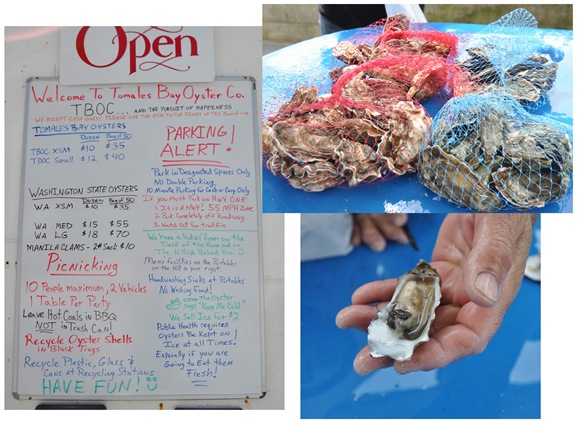 Open
Welcome To Tomales Bay Oyster Co.
TBOC... AND THE PURSUIT OF HAPPINESS
WE ACCEPT CASH ONLY! PLEASE USE THE ATM TO THE RIGHT OF THE
TOMALES BAY OYSTERS
Dozen Bag of 50
TBOC XSM $10 $35
TBOC Small $12 $40
WASHINGTON STATE OYSTERS
Dozen Bag of 50
WA XSM $10 $35
WA MED $15 $55
WA LG $18 $70
MANILA CLAMS - 2# Sack $10
PICNICKING
10 PEOPLE MAXIMUM, 2 VEHICLES
1 TABLE PER PARTY
LEAVE HOT COALS IN BBQ
NOT IN TRASH CAN!
RECYCLE OYSTER SHELLS
IN BLACK TRAYS
RECYCLE PLASTIC, GLASS &
CANS AT RECYCLING STATIONS
HAVE FUN!
PARKING
ALERT!
Park in Designated Spaces Only
No Double Parking
10 Minute Parking for Cash & Carry Only
IF YOU MUST PARK ON HWY ONE
1. It is a HWY! 55 MPH Zone
2. Park Completely off Roadway
3. Watch Out for traffic
We have a Ladies Room on the
Deck of the House and on
The Hillside Behind You
Mens facilities are the Portables
on the Hill to your right.
Handwashing Sinks at Portables
No Washing Food!
The Oyster
Says "Keep Me Cold"
We Sell Ice For $2
Public Health requires
Oysters Be Kept on
Ice at all Times.
Especially if you are
Going to Eat them
Fresh!